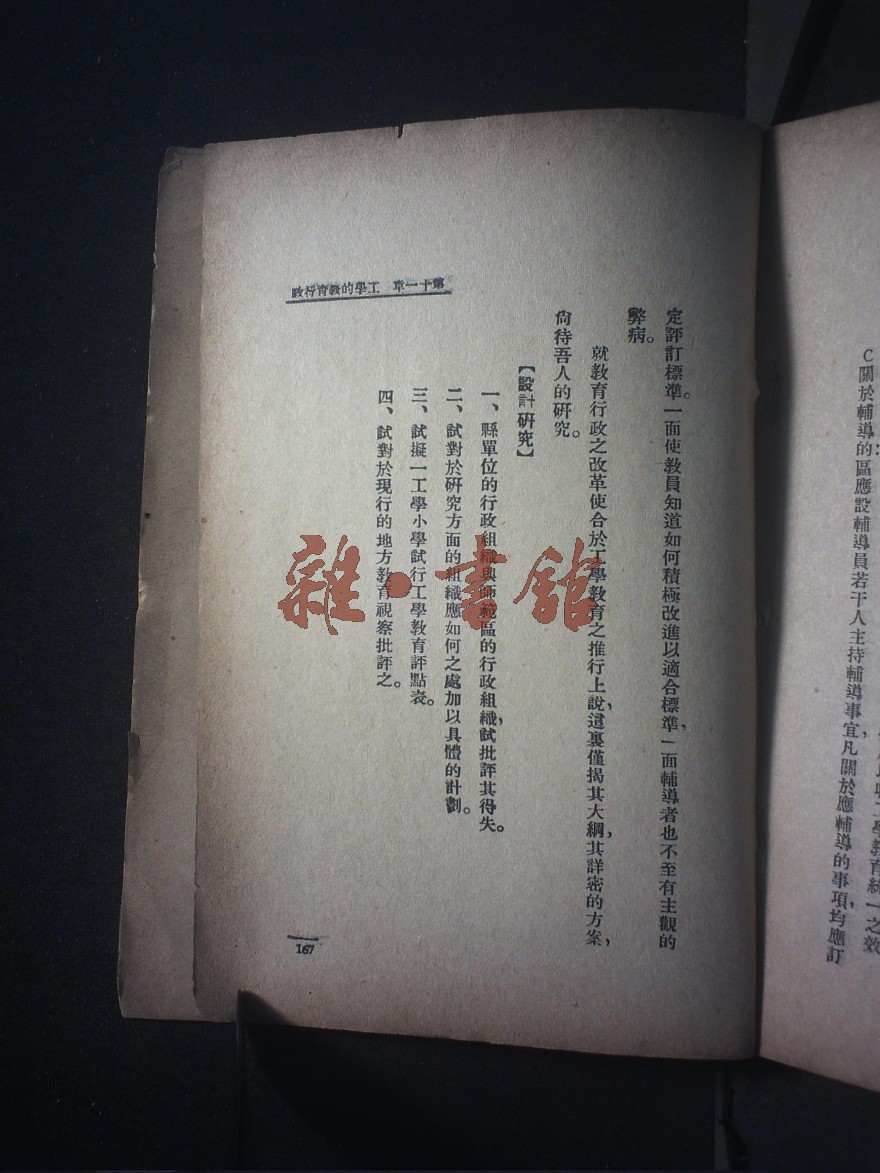 C關於輔導的區應設輔導員若干人主持輔導事宜凡關於應輔導的事項，均應訂
定評訂標準。一面使教員知道如何積極改進以適合標準，一面輔導者也不至有主觀的
弊病。
就教育行政之改革使合於工學教育之推行上說，這裏僅揭其大綱，其詳密的方案，
尙待吾人的硏究。
【設計硏究】
一、縣單位的行政組織與師範區的行政組織，試批評其得失。
二、試對於硏究方面的組織應如何之處加以具體的計劃。
三、試擬一工學小學試行工學教育評點表。
四、試對於現行的地方教育視察批評之。
第十一章 工學的教育行政
167
雜·書館